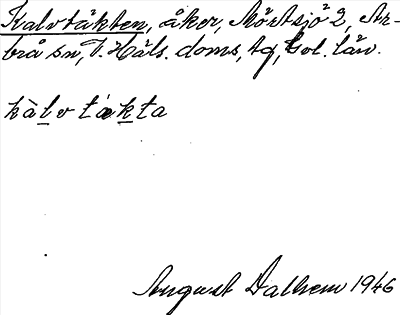 Kalvtäkten, åker, Mörtsjö 2, Ar-
brå sn, V. Häls. doms, tg, Gvl. län.
kàlvtækta
August Dalhem 1946